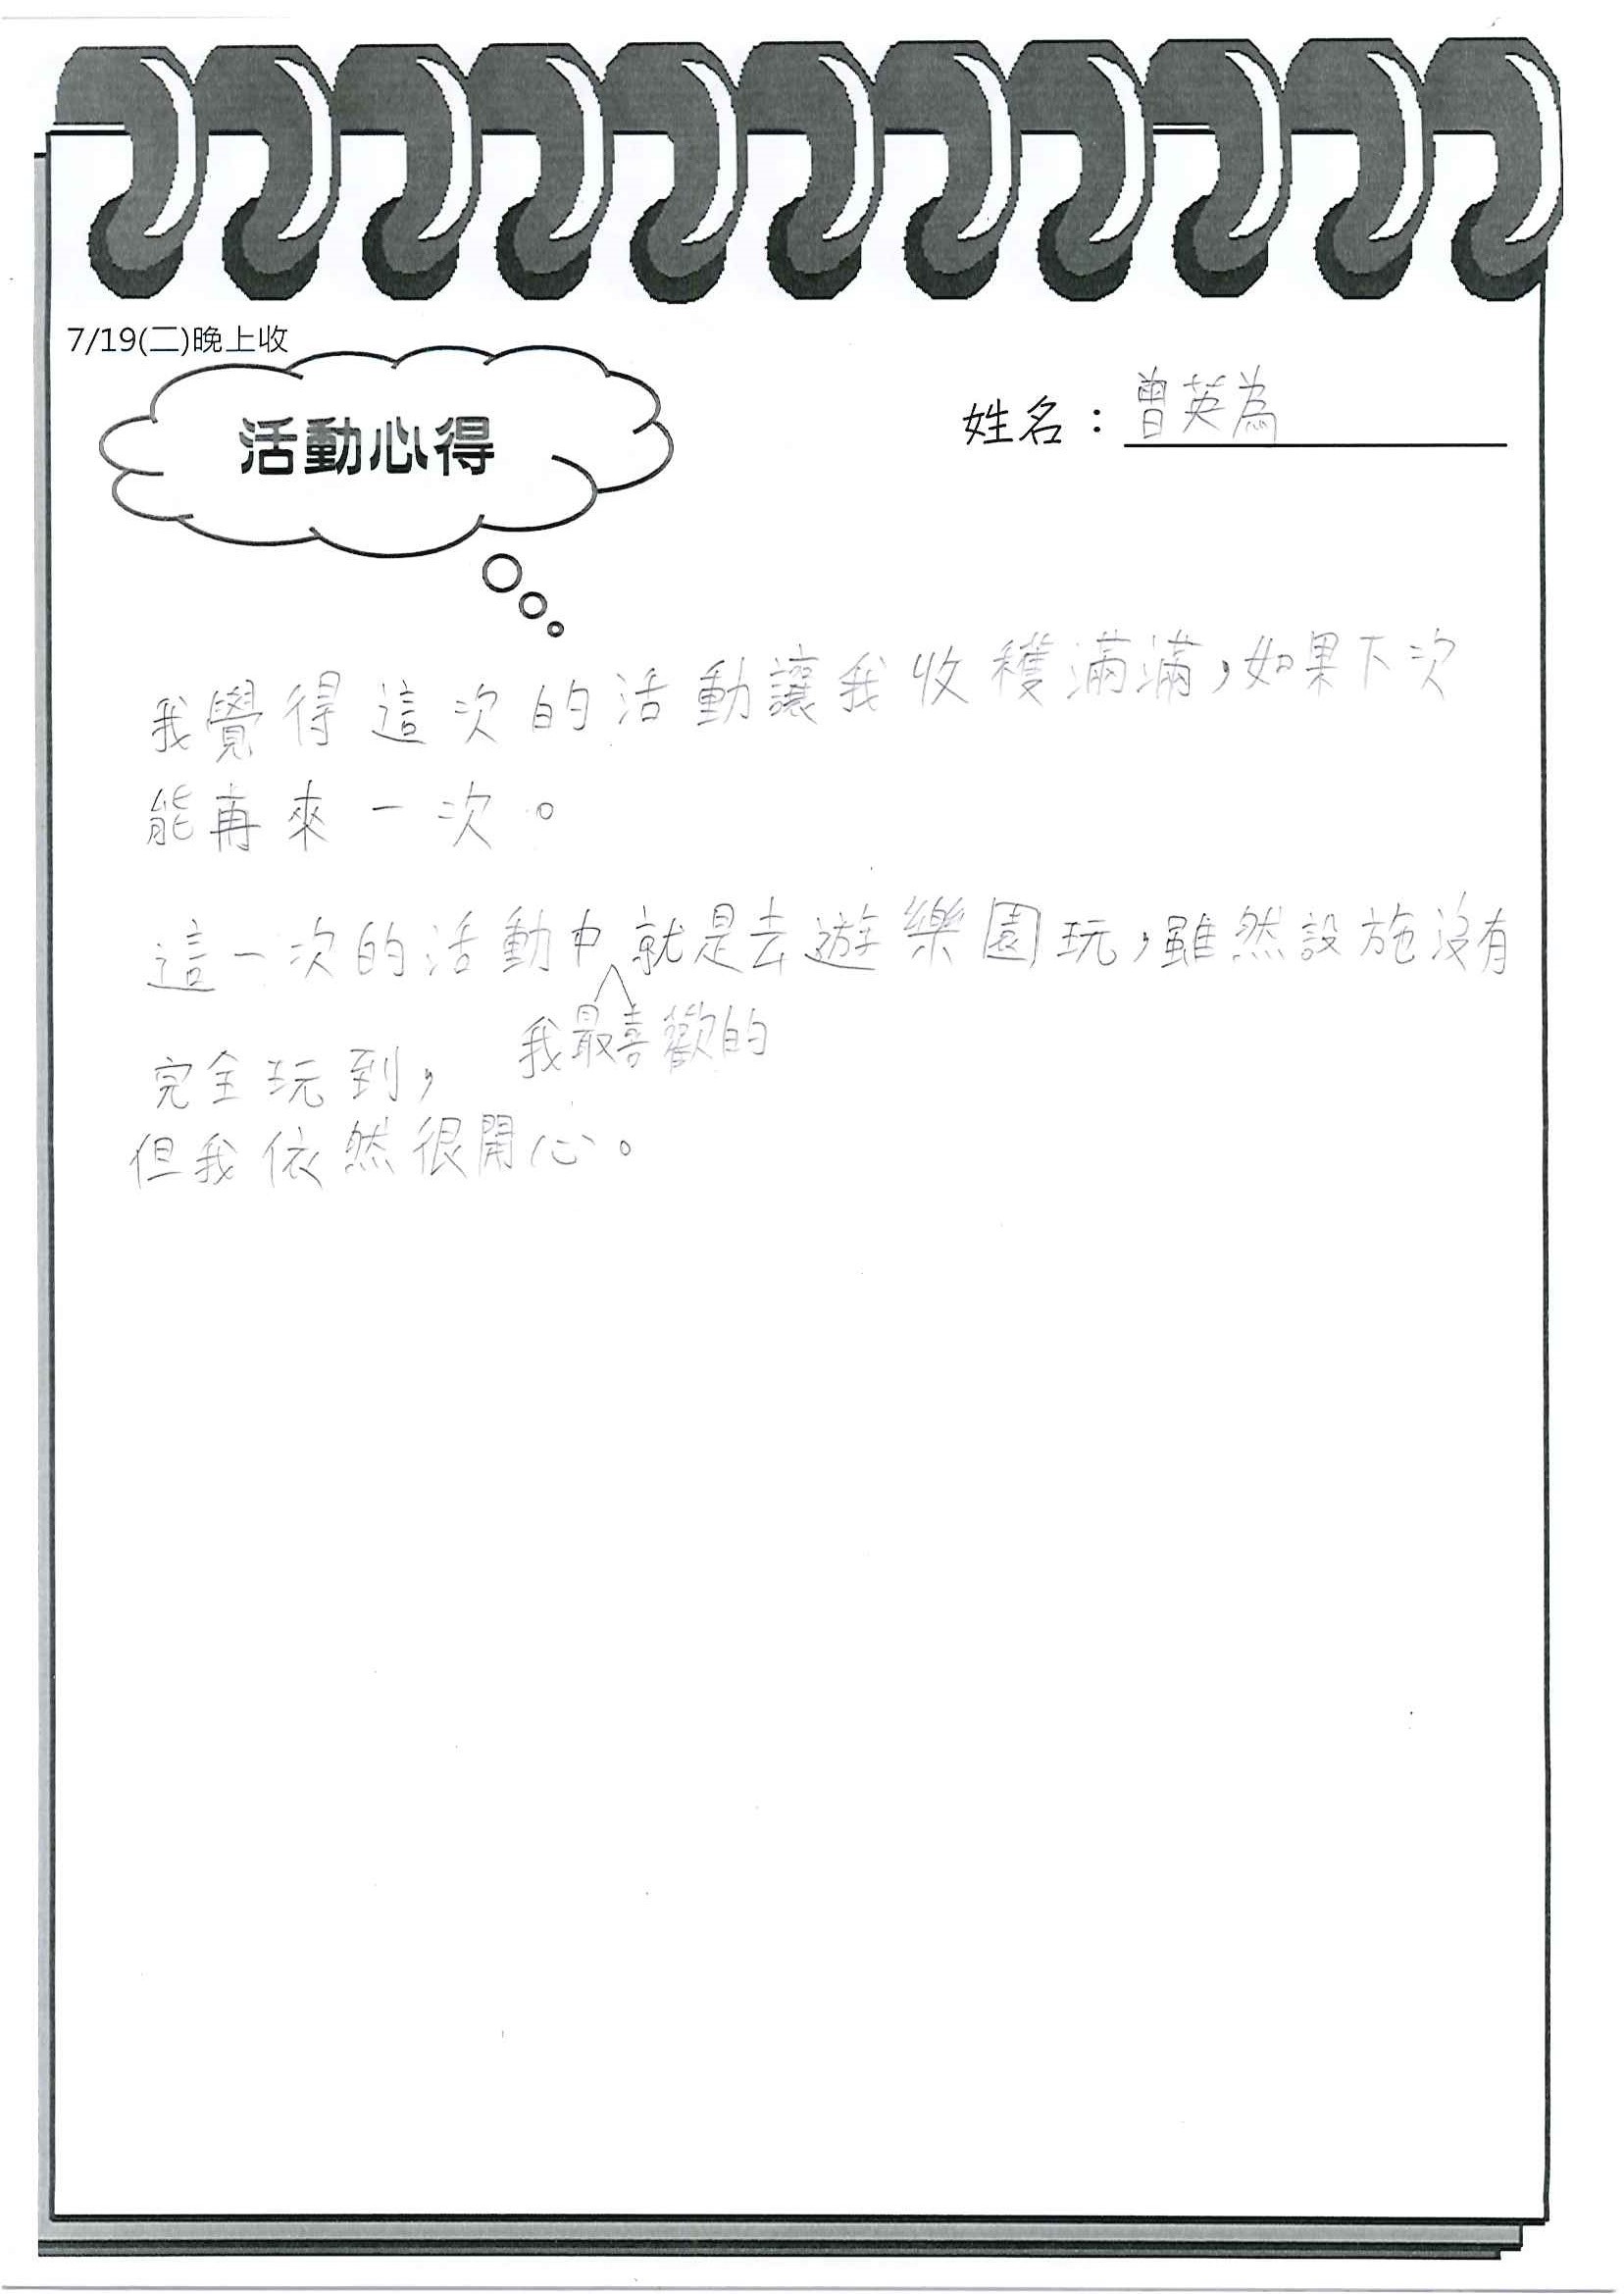 7/19(二)晚上收
活動心得
姓名：曾英為
我覺得這次的活動讓我收穫滿滿，如果下次
能再來一次。
這一次的活動中就是去遊樂園玩，雖然設施沒有
我最喜歡的
完全玩到，
但我依然很開心。